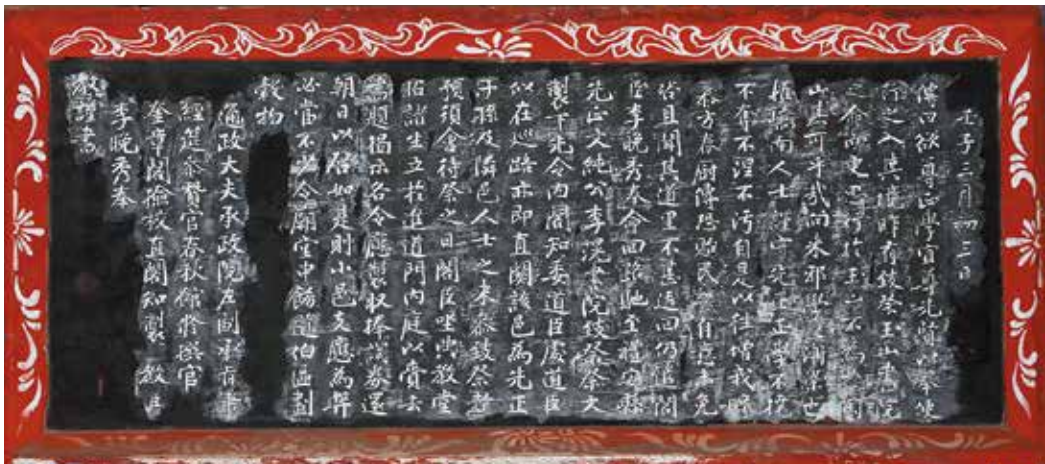 壬子三月初三日
傳曰欲尊正學宜尊先賢以奉使
行之入其境昨有致祭玉山書院
之命而更思行於玉山不行於陶
山其可乎哉向來邪學之漸染也
惟嶠南人士謹守先正正學不撓
不奪不涅不污自是以往增我曠
方春厨傳恐貽民弊自是未免
苟且聞其道里不甚遠回仍退閣
臣李晚秀奉命回路馳至禮安縣
先正文純公李滉書院致祭祭文
製下先令內閣知委道臣處道臣
似在巡路亦即直關該邑爲先正
子孫及隣邑人士之來參致祭者
預須會待祭之日閣臣坐典敎堂
招諸生立於進道門內庭以賫去
題揭示各令應製收捧試券還
朝日以啓如是則小邑支應爲弊
必當不少令廟堂申飭道伯區劃
穀物
通政大夫承政院左副承旨兼
經筵參贊官春秋館修撰官
奎章閣檢校直閣知製 敎臣
李晚秀奉
敎謹書